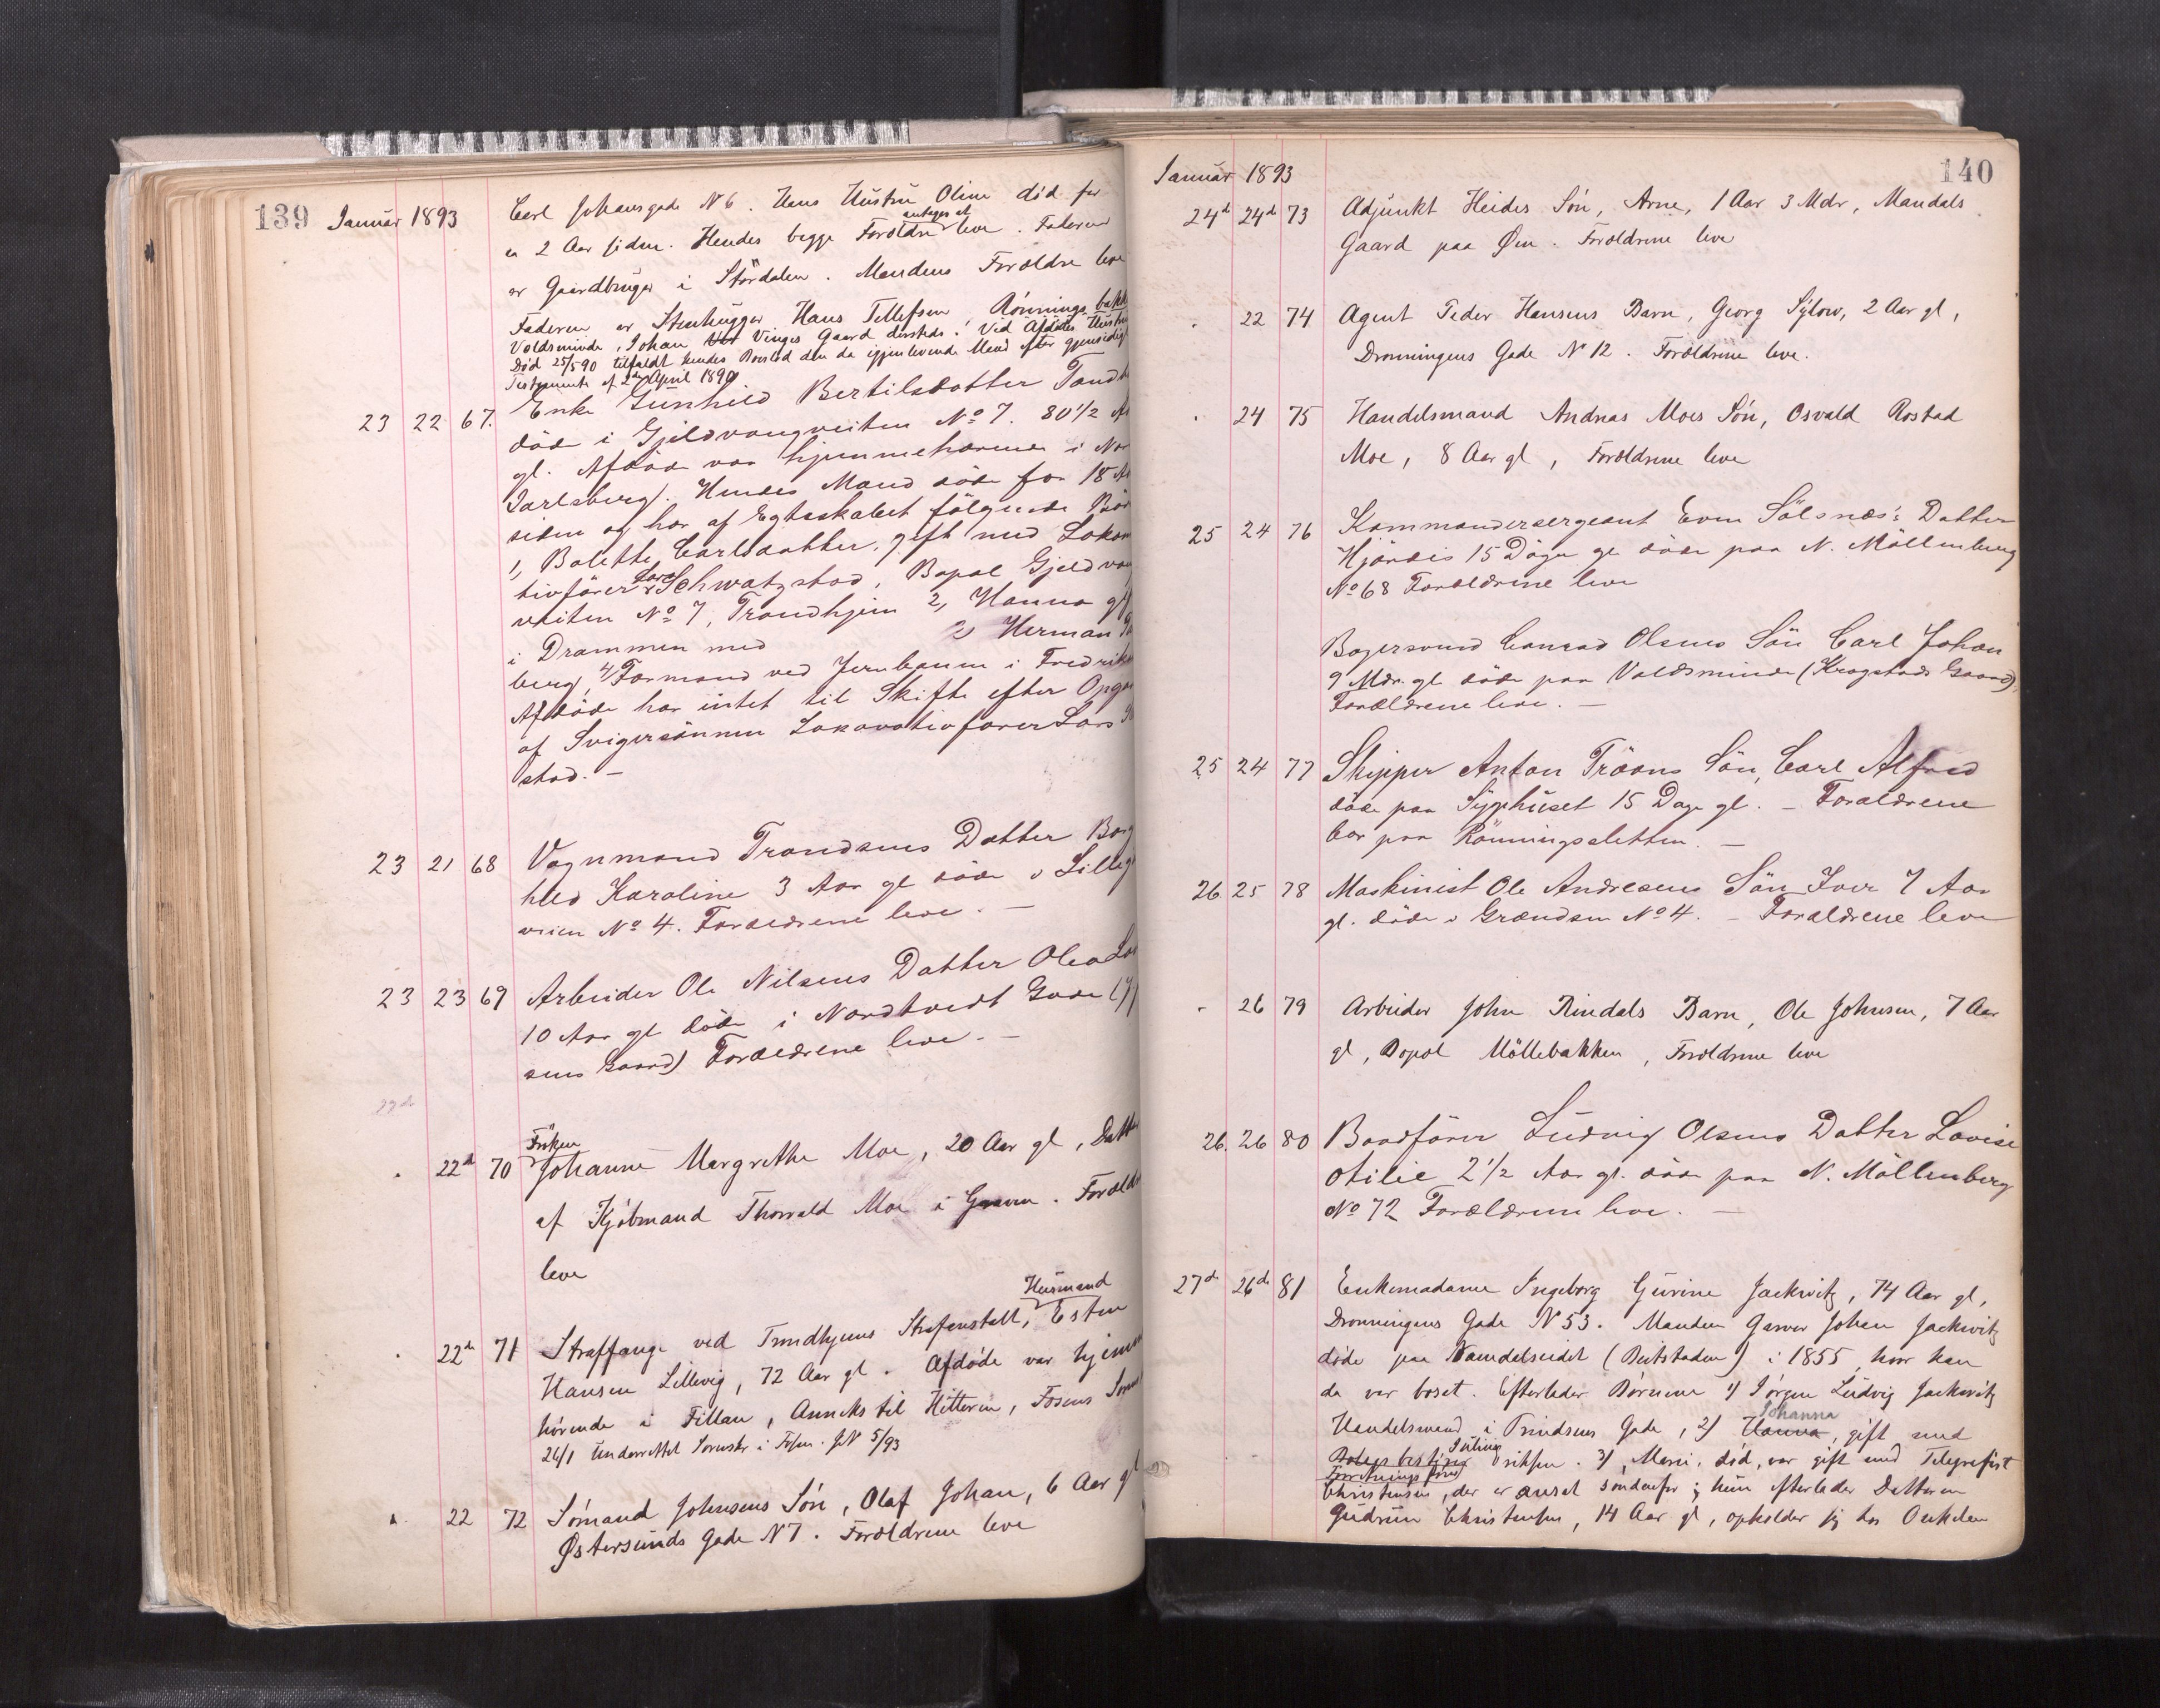 139 Januar 1893
Carl Johansgade N 6. Hans Hustru Oline död for
antages at
ca 2 Aar siden. Hendes begge Forældre leve. Faderen
er Gaardbruger i Stördalen. Mandens Forældre leve
Faderen er Stenhugger Hans Tellefsen, Rönningsbakk
Voldsminde, Johan Vinges Gaard dersteds. Ved Afdødes Hustru
Död 25/5 90 tilfaldt hendes Bonslod den da igjenlevende Mand efter gjensidigt
Testamente af 2den April 1890
23 22 67. Enke Gunhild Bertilsdatter
döde i Gjeldvangveiten No 7. 80 1/2
gl. Afdöde var hjemmehörende i
Jarlsberg. Hendes Mand döde for 18
siden og har af Egteskabet fölgende
1, Bolette Carlsdatter, gift med
Lars
tivförer Schwatzstad, Bopæl
veiten No 7, Trondhjem 2, Hanna
i Drammen med 3) Herman
berg, 4) Formand ved Jernbanen i
Afdöde har intet til Skifte efter
af Svigersönnen Lokomotivförer Lars
stad. —
23 21 68 Vognmand Trondsens Datter
hild Karoline 3 Aar gl döde i
veien No 4. Forældrene leve. —
23 23 69 Arbeider Ole Nilsens Datter Olea
10 Aar gl döde i Nordtvedt Gade
sens Gaard) Forældrene leve. —
Fröken
" 22d 70 Johanne Margrethe Moe, 20 Aar gl, Datter
af Kjøbmand Thorvald Moe i Graven. Forældre
leve
Husmand
" 22de 71 Straffange ved Trondhjems Strafanstalt, Esten
Hansen Lillevig, 72 Aar gl. Afdøde var hjemme
hørende i Fillan, Anneks til Hitteren, Fosens
26/1 Underrettet Sorenskr i Fosen. JN 5/93
" 22 72 Sømand Johnsens Søn, Olaf Johan, 6 Aar gl
Østersunds Gade N 7. Forældrene leve
Januar 1893 140
24d 24d 73 Adjunkt Heides Søn, Arne, 1 Aar 3 Mdr, Mandals
Gaard paa Øen. Forældrene leve
" 22 74 Agent Peder Hansens Barn, Georg Sylow, 2 Aar gl,
Dronningens Gade N 12. Forældrene leve.
" 24 75 Handelsmand Andreas Moes Søn, Osvald Rostad
Moe, 8 Aar gl, Forældrene leve
25 24 76 Kommandersergeant Even Sölsnæs's Datter
Hjördis 15 Dage gl döde paa N. Möllenberg
No 68 Forældrene leve
Bagersvend Conrad Olsens Sön Carl Johan
9 Mdr. gl döde paa Voldsminde (Krogstads Gaard),
Forældrene leve. —
25 24 77 Skipper Anton Tröens Sön, Carl Alfred
döde paa Sygehuset 15 Dage gl. — Forældrene
bor paa Rönningsletten. —
26 25 78 Maskinist Ole Andresens Sön Iver 7 Aar
gl. döde i Grændsen No 4. — Forældrene leve
" 26 79 Arbeider John Rindals Barn, Ole Johnsen, 7 Aar
gl, Bopæl Möllebakken, Forældrene leve
26. 26 80 Baadförer Ludvig Olsens Datter Lovise
Otilie 2 1/2 Aar gl. döde paa N. Möllenberg
No 72 Forældrene leve. —
27d 26d 81 Enkemadame Ingeborg Gurine Jackwitz, 74 Aar gl,
Dronningens Gade N 53. Manden Garver Johan Jackwitz
døde paa Namdalseidet (Beitstaden) i 1855 hvor han
da var boset. Efterlader Børnene 1) Jørgen Ludvig Jackwitz
Johanna
Handelsmand i Trondsens Gade, 2) Hanna, gift med
Julius
Bolagsbestyrer Eriksen. 3) Marie, död, var gift med Telegrafist
Forretningsförer
Christensen, der er ansat søndenfor; hun efterlader Datteren
Gudrun Christensen, 14 Aar gl, opholder sig hos Onkelen